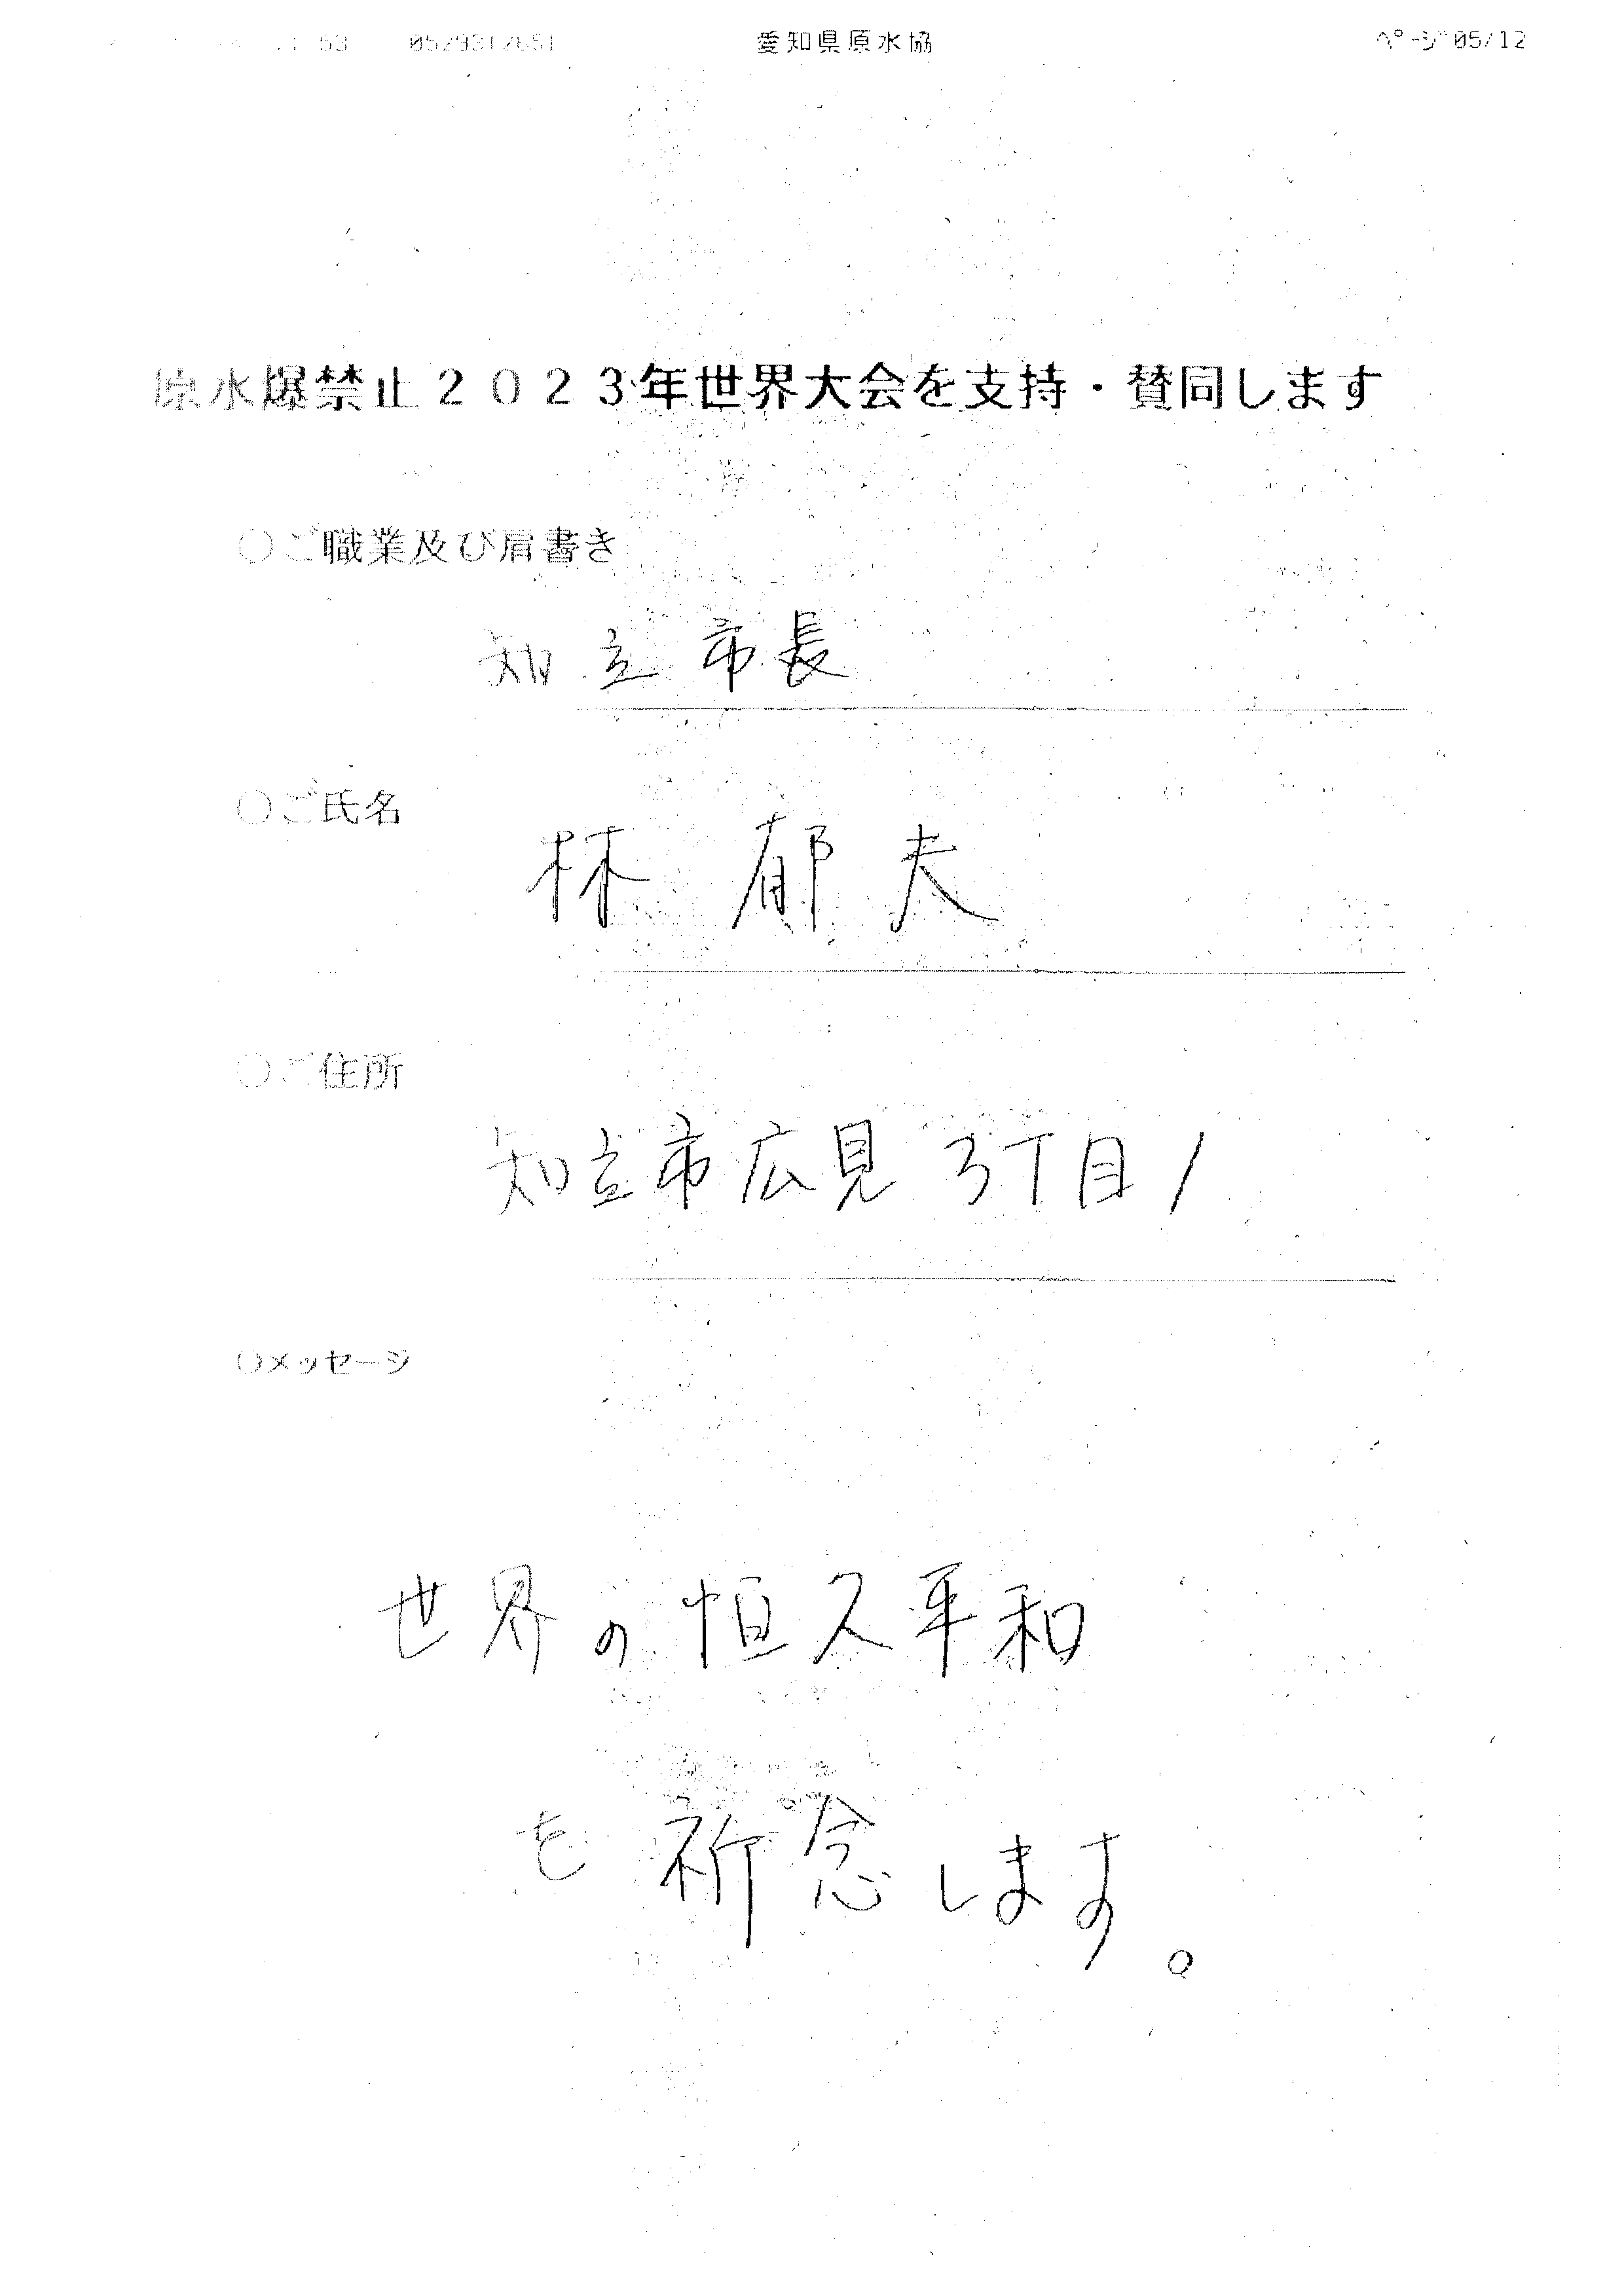 53 0529312651 愛知県原水協 ページ05/12
原水爆禁止2023年世界大会を支持・賛同します
○ご職業及び肩書き
知立市長
○ご氏名
林 郁夫
○ご住所
知立市広見3丁目1
○メッセージ
世界の恒久平和
を祈念します。